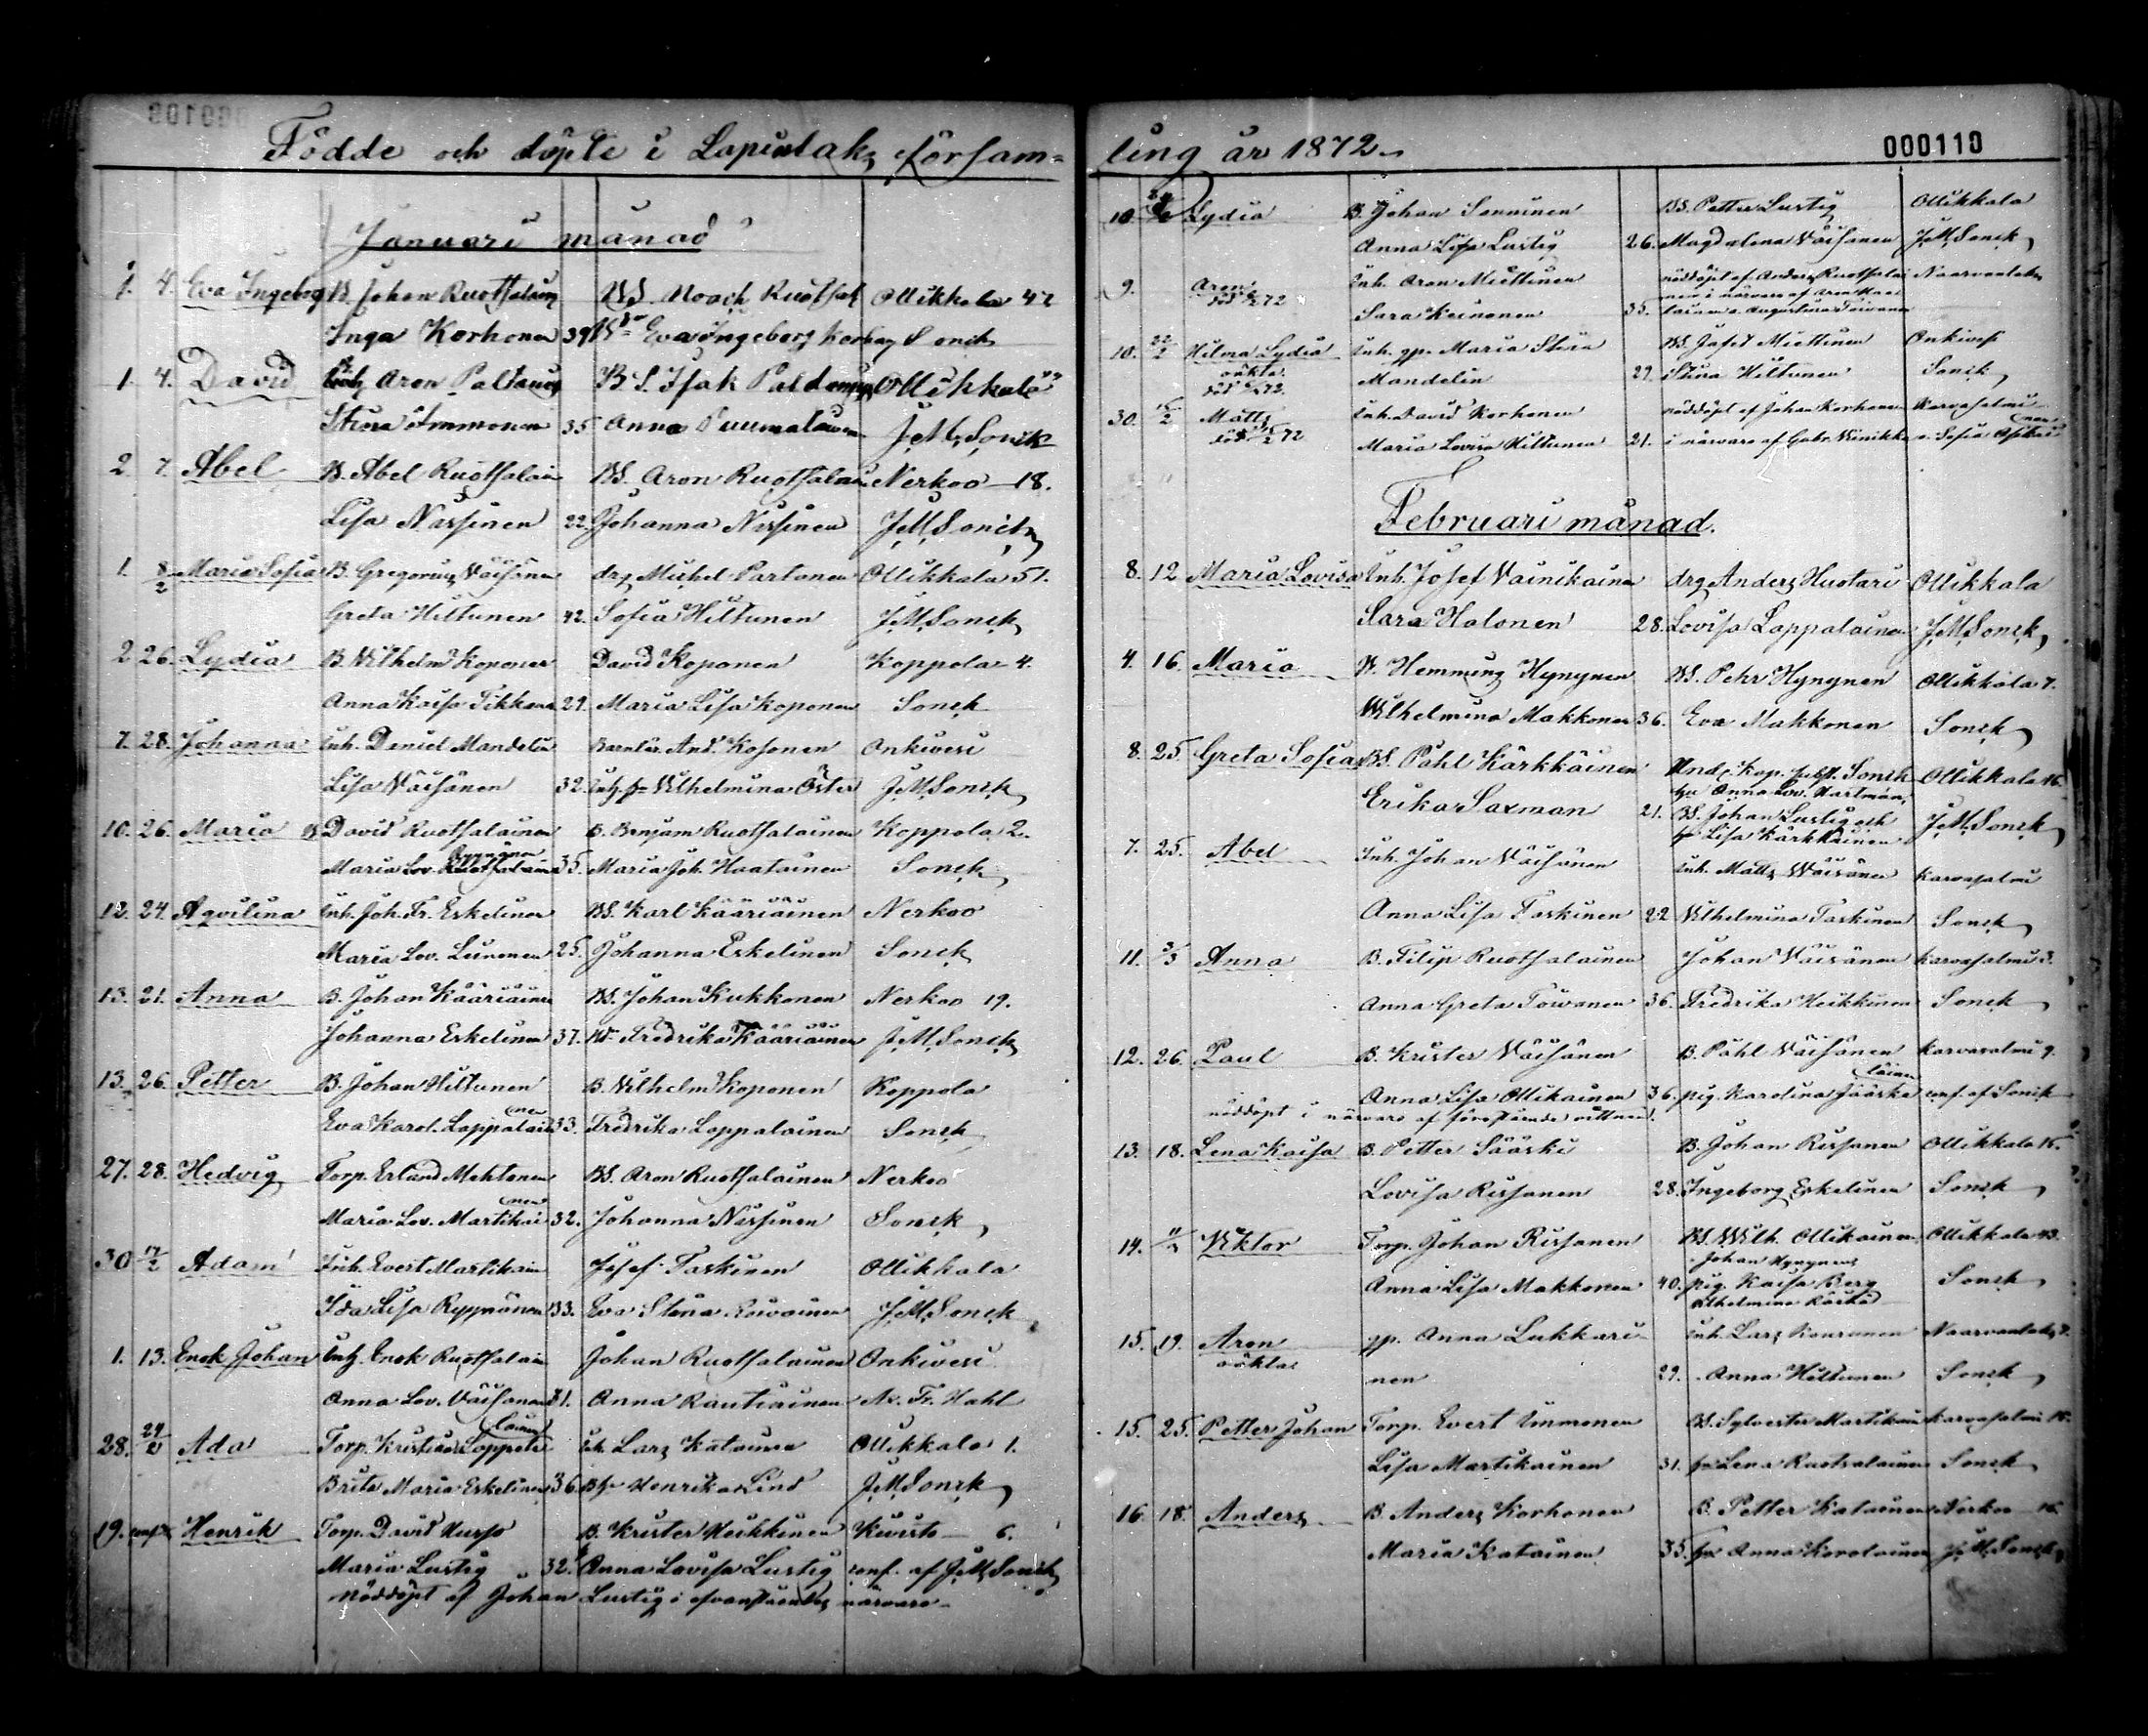 Födde och döpte i Lapinlaks försam-
Januari månad
1. 4. Eva Ingeborg B. Johan Ruotsalain BS. Noach Ruotsal Ollikkala 42
Inga Korhonen 39 Eva Ingeborg Korhon Sonck
1. 4. David Aron Paldanius B S. Isak Paldanius Ollikkala
Stina Immonen 35 Anna Puumalainen J.M. Sonck
2. 7. Abel B. Abel Ruotsalain BS. Aron Ruotsalain Nerkoo 18.
Lisa Nissinen 22. Johanna Nissinen J.M. Sonck
1. 8/2 Maria Sofia B. Gregorius Väisänen drg Michel Partanen Ollikkala 51.
Greta Hiltunen 42. Sofia Hiltunen J.M. Sonck
2 26. Lydia B. Wilhelm Koponen David Koponen Koppola 4.
Anna Kaisa Tikkan 29. Maria Lisa Koponen Sonck
7. 28. Johanna Inh. Daniel Mandelin And. Kosonen Onkivesi
Lisa Väisänen 32. Wilhelmina Öster J.M. Sonck
10. 26. Maria B David Ruotsalainen B. Benjam Ruotsalainen Koppola 2.
Maria Lov. Ryynänen 35. Maria Joh. Haatainen Sonck
12. 24. Aqvilina Inh. Joh. Fr. Eskelinen BS. Karl Kääriäinen Nerkoo
Maria Lov. Leinonen 25. Johanna Eskelinen Sonck
13. 21. Anna B. Johan Kääriäinen BS. Johan Kukkonen Nerkoo 19.
Johanna Eskelinen 37. Fredrika Kääriäinen J.M. Sonck
13. 26. Petter B. Johan Hiltunen B. Wilhelm Koponen Koppola
Eva Karol. Lappalainen 33. Fredrika Lappalainen Sonck
27. 28. Hedvig Torp. Erland Mehtonen BS. Aron Ruotsalainen Nerkoo
Maria Lov. Martikainen 32. Johanna Nissinen Sonck
30 17/2 Adam Inh. Evert Martikain Josef Taskinen Ollikkala
Ida Lisa Ryynänen 33. Eva Stina J.M. Sonck
1. 13. Enok Johan Inh. Enok Ruotsalain Johan Ruotsalainen Onkivesi
Anna Lov. Väisänen 31. Anna Rautiainen Fr. Hahl
28. 24/2 Ada Torp. Kristian Lappalainen Lars Katainen Ollikkala 1.
Brita Maria Eskelinen 36. Henrika Lind J.M. Sonck
19. conf. Henrik Torp. David Husso B. Krister Heikkinen Kivisto 6.
Maria Lustig 32. Anna Lovisa Lustig conf. af J.M. Sonck
Nöddöpt af Johan Lustig i ofvanståendes närvaro
ling år 1872.
000110
10. Lydia B. Johan Sonninen BS. Petter Lustig Ollikkala
Anna Lisa Lustig 26. Magdalena Väisänen J.M. Sonck
9. Aron Inh. Aron Miettinen nöddöpt af Anders Ruotsalai Naarvanlaks
död 72 nen i närvaro af
Sara Keinonen 35. Augustina Toivanen
10. 22/2 Hilma Lydia Inh. gp. Maria Stina BS. Jafet Miettinen Onkivesi
oäkta Mandelin 29. Stina Hiltunen Sonck
död 72.
30. Matts Inh. David Korhonen nöddöpt af Johan Korhonen Karvasalmi
död 72 Maria Lovisa Hiltunen 21. i närvaro af Gabr. o. Sofia
Februari månad.
8. 12 Maria Lovisa Inh. Josef Vainikainen drg Anders Huotari Ollikkala
Sara Halonen 28. Lovisa Lappalainen J.M. Sonck
4. 16. Maria B. Hemming Hynynen BS. Pehr Hynynen Ollikkala 7.
Wilhelmina Makkonen 36. Eva Makkonen Sonck
8. 25 Greta Sofia BS. Påhl Kärkkäinen Kap. Sonck Ollikkala 16.
fru Anna Lov. Hartman
Erika Saxman 21. BS. Johan Lustig och J.M. Sonck
Lisa Kärkkäinen
7. 25. Abel Inh. Johan Väisänen Inh. Matts Väisänen Karvasalmi
Anna Lisa Taskinen 22 Wilhelmina Taskinen Sonck
11. 3/3 Anna B. Filip Ruotsalainen Johan Väisänen Karvasalmi 3.
Anna Greta Toivanen 36. Fredrika Heikkinen Sonck
12. 26. Paul B. Krister Väisänen B. Påhl Väisänen Karvasalmi 9.
Anna Lisa Ollikainen 36. pig. Karolina Jääskeläinen conf. af Sonck
nöddöpt i närvaro af förestående vittnen.
13. 18. Lena Kaisa B. Petter Sääski B. Johan Rissanen Ollikkala 15.
Lovisa Rissanen 28. Ingeborg Eskelinen Sonck
14. Viktor Torp. Johan Rissanen BS. Wilh. Ollikainen Ollikkala 43.
Johan Hynynen
Anna Lisa Makkonen 40. pig. Kaisa Berg Sonck
Wilhelmina
15. 19. Aron gp. Anna Lukkari- Inh. Lars Naarvanlaks 7.
oäkta nen 29. Anna Hiltunen Sonck
15. 25. Petter Johan Torp. Evert Immonen BS. Sylvester Martikain Karvasalmi 15.
Lisa Martikainen 31. Lena Ruotsalainen Sonck
16. 18. Anders B. Anders Korhonen B. Petter Katainen Nerkoo
Maria Katainen 35. Anna Korolainen J.M. Sonck